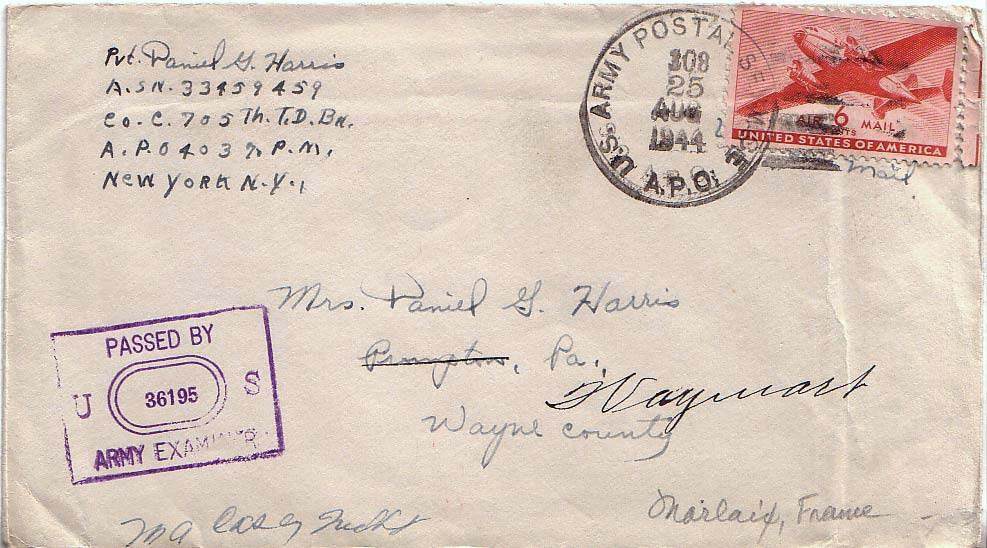 Pvt. Daniel G. Harris
A.S.N. 33459459
Co. C. 705 Th. T.D. Bn.
A.P.O 403 % P.M.
NEW YORK N.Y.,
U.S. ARMY POSTAL
308
25
AUG
1944
A.P.O.
AIR 6 MAIL
UNITED STATES OF AMERICA
Mail
Mrs. Daniel G. Harris
Prompton, Pa.,
Waymart
Wayne County
PASSED BY
U 36195 S
ARMY EXAMINER
Morlaix, France